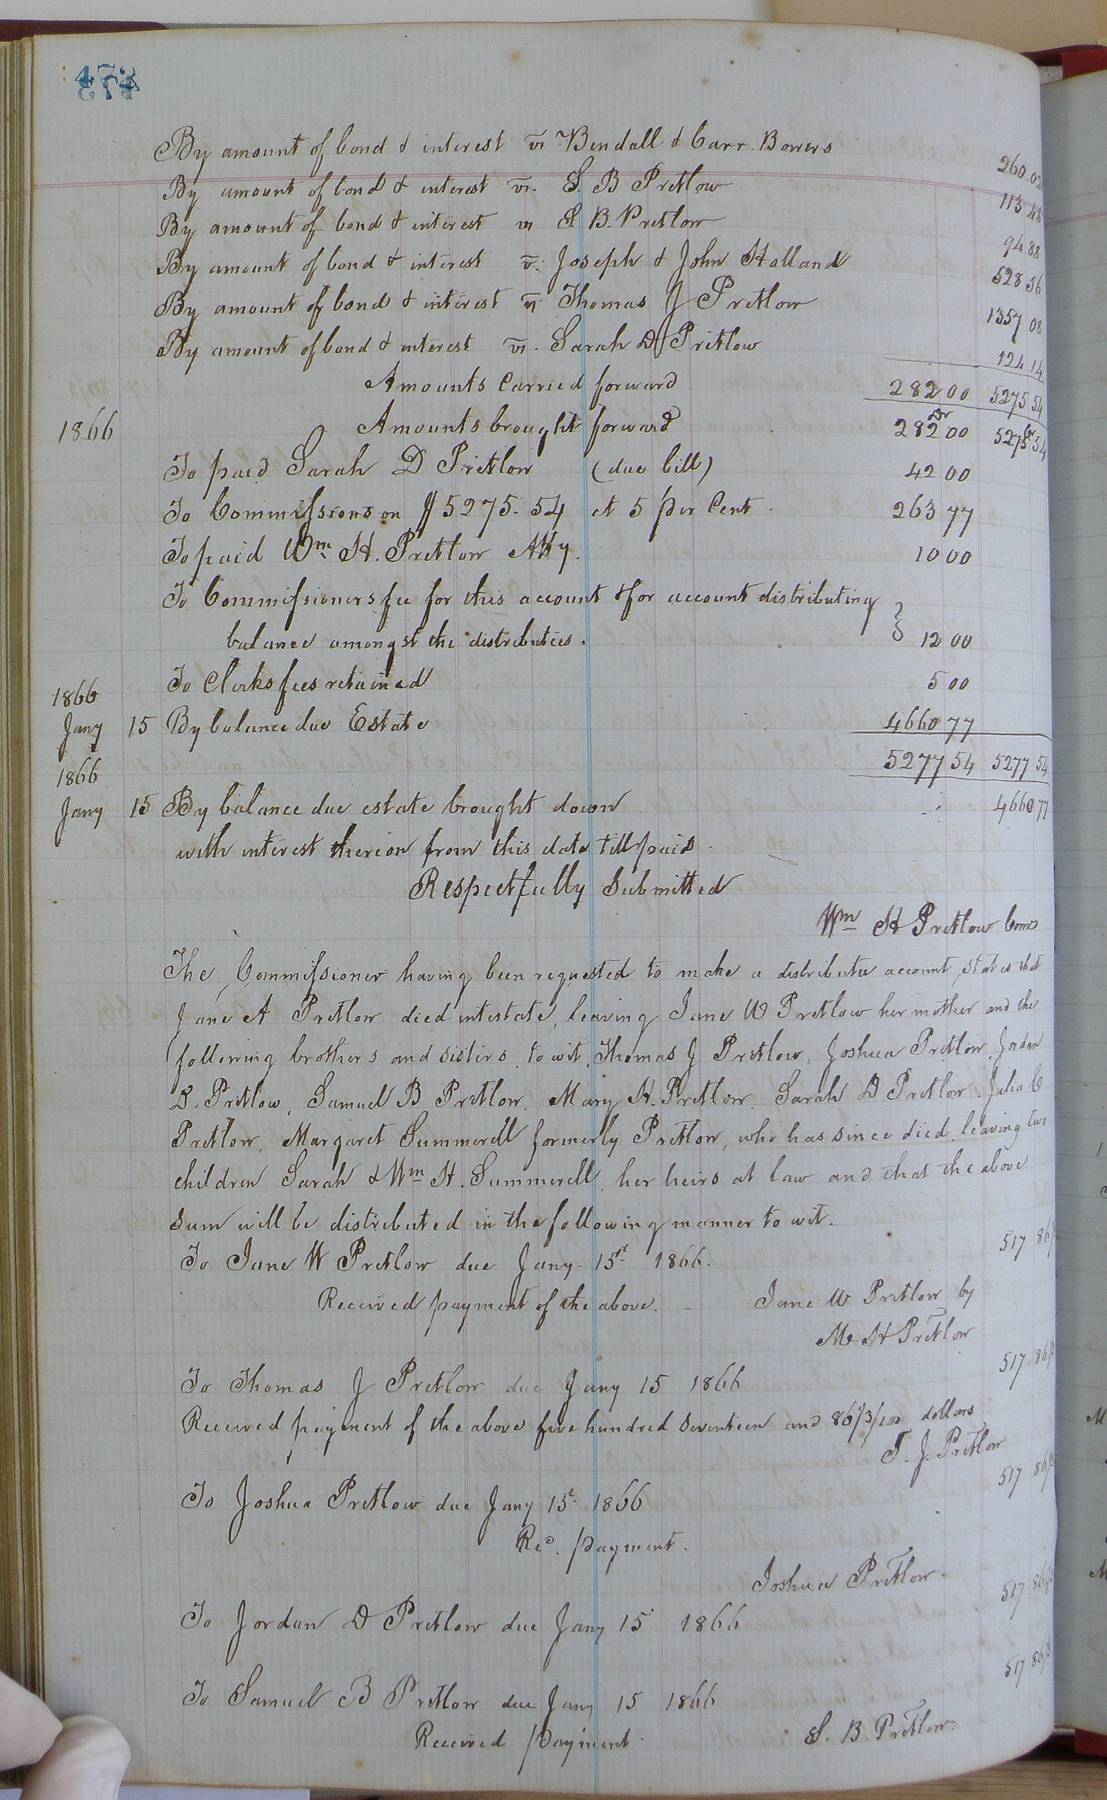 473
By amount of bond & interest vs Bendall & Carr Bowers 260.02
By amount of bond & interest vs. S. B Pretlow 113 48
By amount of bond & interest vs S. B. Pretlow 94 88
By amount of bond & interest vs. Joseph & John Holland 528 56
By amount of bond & interest vs Thomas J Pretlow 1357 08
By amount of bond & interest vs. Sarah D Pretlow 124 14
Amounts Carried forward 282 00 5275 54
1866 Amounts brought forward Dr 282 00 Cr 5275 54
To paid Sarah D Pretlow (due bill) 42 00
To Commissions on $5275.54 at 5 per Cent. 263 77
To paid Wm H. Pretlow Atty. 10 00
To Commissioners fee for this account & for account distributing
balance amongst the distributees. 12 00
To Clerks fees retained 5 00
1866
Jany 15 By balance due Estate 4660 77
5277 54 5277 54
1866
Jany 15 By balance due estate brought down 4660 77
with interest thereon from this date till paid
Respectfully Submitted
Wm H Pretlow Comr
The Commissioner having been requested to make a distributee account, states that
Jane A Pretlow died intestate, leaving Jane W Pretlow her mother and the
following brothers and sisters, to wit, Thomas J Pretlow, Joshua Pretlow, Jordan
D. Pretlow, Samuel B Pretlow, Mary H. Pretlow, Sarah D Pretlow, Julia C
Pretlow, Margaret Summerell formerly Pretlow, who has since died, leaving two
children Sarah & Wm H. Summerell, her heirs at law and that the above
sum will be distributed in the following manner to wit.
To Jane W Pretlow due Jany. 15th 1866. 517 86
Received payment of the above. Jane W Pretlow by
M. H Pretlow
To Thomas J Pretlow due Jany 15 1866 517 86
Received payment of the above five hundred seventeen and 86 1/3/100 dollars
T. J. Pretlow
To Joshua Pretlow due Jany 15th 1866 517 86
Recd. payment.
Joshua Pretlow.
To Jordan D Pretlow due Jany 15 1866 517 86
To Samuel B Pretlow due Jany 15 1866 517 86
Received payment. S. B. Pretlow.